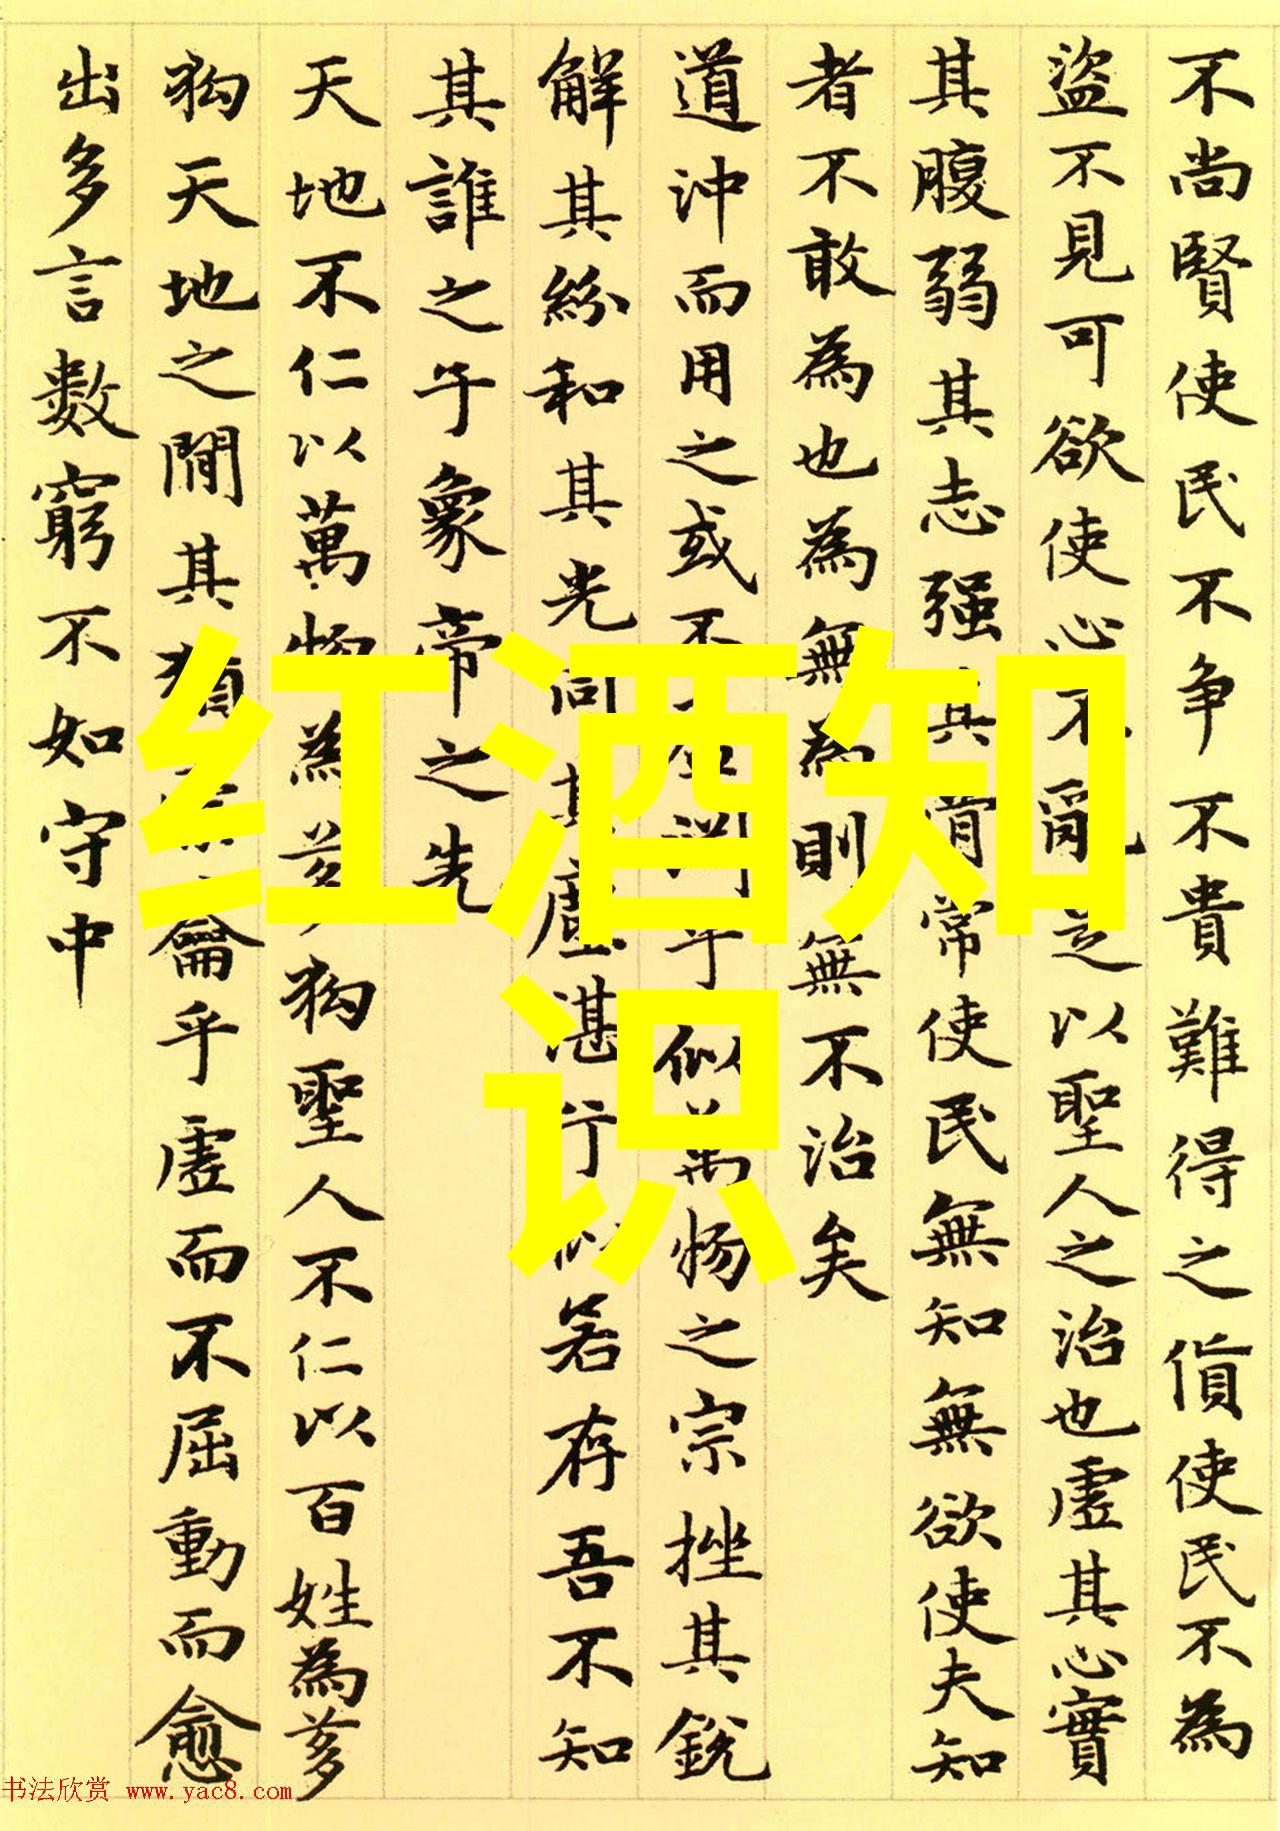 不尚賢使民不争不貴難得之貨使民不為
盜不見可欲使心不亂是以聖人之治也虛其心實
其腹弱其志强其骨常使民無知無欲使夫知
者不敢為也為無為則無不治矣
道沖而用之或不盈淵乎似萬物之宗挫其銳
解其紛和其光同其塵湛兮似若存吾不知
其誰之子象帝之先
天地不仁以萬物為芻狗聖人不仁以百姓為芻
狗天地之間其猶橐龠乎虛而不屈動而愈
出多言數窮不如守中
红酒知
识
书法欣赏 www.yac8.com